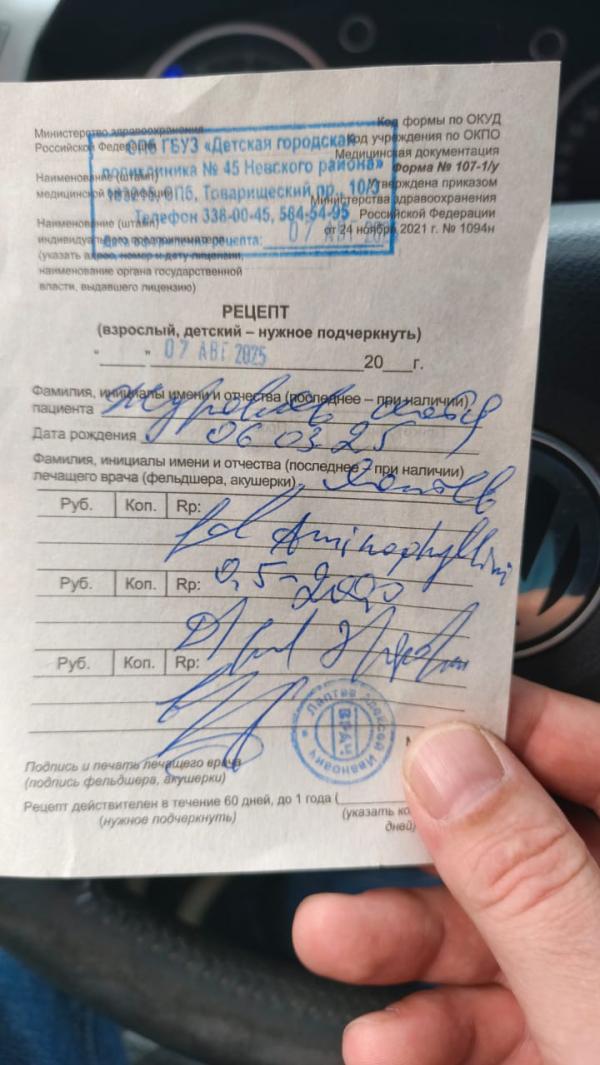 Министерство здравоохранения
Российской Федерации
Код формы по ОКУД
Код учреждения по ОКПО
Медицинская документация
Форма № 107-1/у
Утверждена приказом
Министерства здравоохранения
Российской Федерации
от 24 ноября 2021 г. № 1094н
СПб ГБУЗ «Детская городская
поликлиника № 45 Невского района»
СПб, Товарищеский пр., 10/3
Телефон 338-00-45, 584-54-95
рецепта: 07 АВГ
Наименование (штамп)
медицинской
Наименование (штамп)
индивидуального предпринимателя
(указать адрес, номер и дату лицензии,
наименование органа государственной
власти, выдавшего лицензию)
РЕЦЕПТ
(взрослый, детский – нужное подчеркнуть)
" " 07 АВГ 2025 20 г.
Фамилия, инициалы имени и отчества (последнее – при наличии)
пациента
Дата рождения 06 03 25
Фамилия, инициалы имени и отчества (последнее – при наличии)
лечащего врача (фельдшера, акушерки) Лаптев
Руб. Коп. Rp:
Sol Aminophyllini
Руб. Коп. Rp: 0,5 - 200,0
Руб. Коп. Rp:
Лаптев Алексей Иванович
ВРАЧ
Подпись и печать лечащего врача
(подпись фельдшера, акушерки)
Рецепт действителен в течение 60 дней, до 1 года (
(нужное подчеркнуть)
(указать
дней)